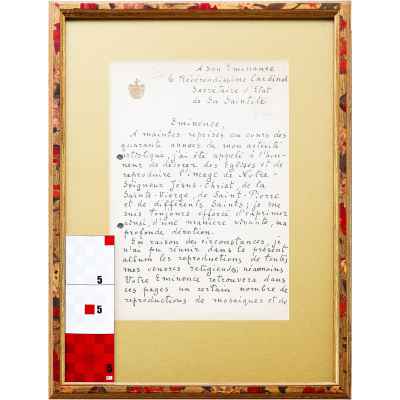 A Son Eminence
le Révérendissime Cardinal
Secrétaire d'Etat
de Sa Sainteté
Eminence,
A maintes reprises au cours des
quarante années de mon activité
artistique, j'ai été appelé à l'hon-
neur de décorer des Eglises et de
reproduire l'image de Notre-
Seigneur Jésus-Christ, de la
Sainte-Vierge, de Saint-Pierre
et de différents Saints; je me
suis toujours efforcé d'exprimer
ainsi, d'une manière vivante, ma
profonde dévotion.
En raison des circonstances, je
n'ai pu réunir dans le présent
album les reproductions de toutes
mes oeuvres religieuses; néanmoins
Votre Eminence retrouvera dans
ces pages un certain nombre de
reproductions de mosaïques et de
5
5
5